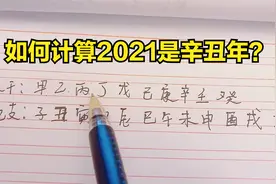 如何计算2021是辛丑年?
干:甲乙丙丁戊己庚辛壬癸
支:子丑寅卯辰巳午未申酉戌